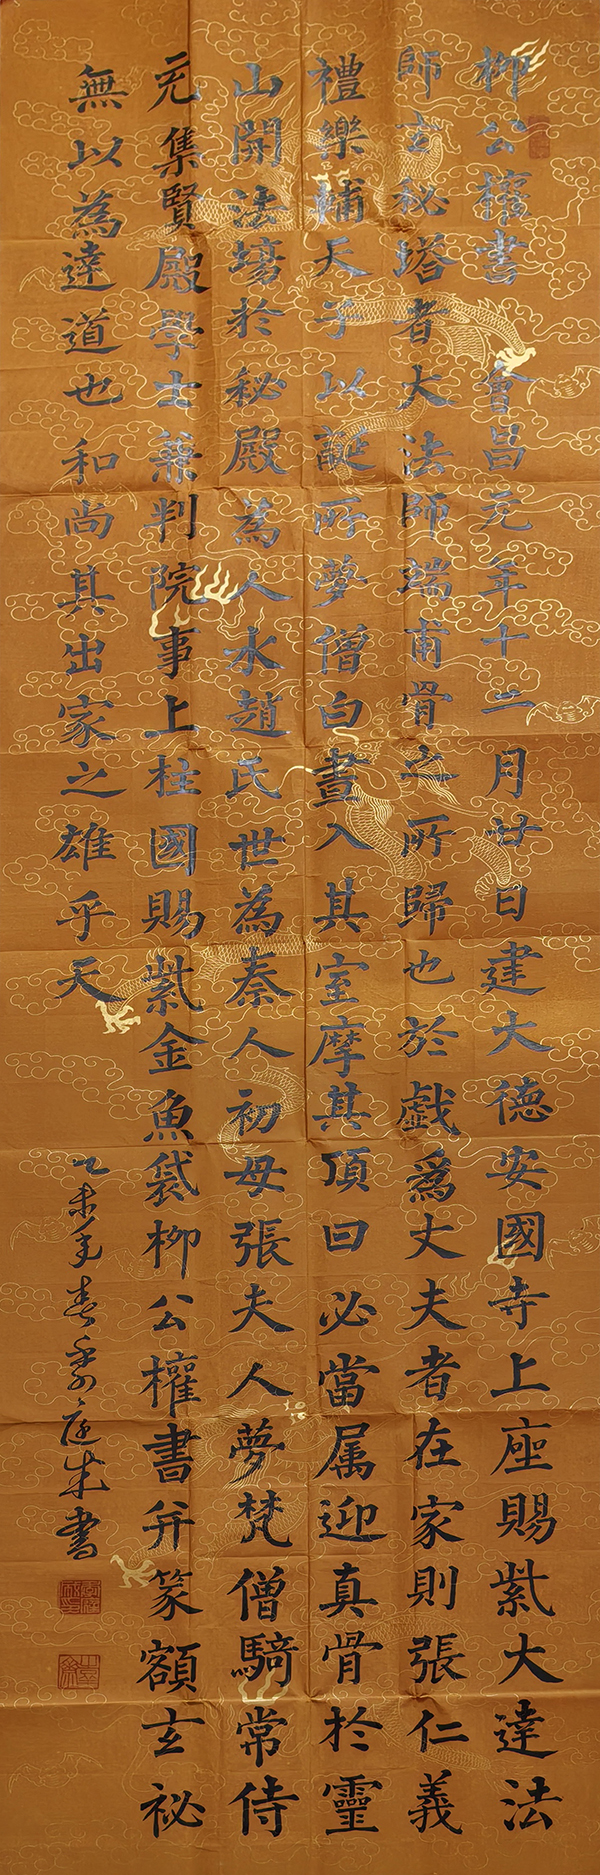 柳公權書 會昌元年十二月廿日建大德安國寺上座賜紫大達法
師玄秘塔者大法師端甫骨之所歸也於戲爲丈夫者在家則張仁義
禮樂輔天子以誕所夢僧白晝入其室摩其頂曰必當属迎真骨於靈
山開法塲於秘殿為人水趙氏世為秦人初母張夫人夢梵僧騎常侍
充集賢殿學士兼判院事上柱國賜紫金魚袋柳公權書并篆額玄祕
無以為達道也和尚其出家之雄乎天
乙未年春 書